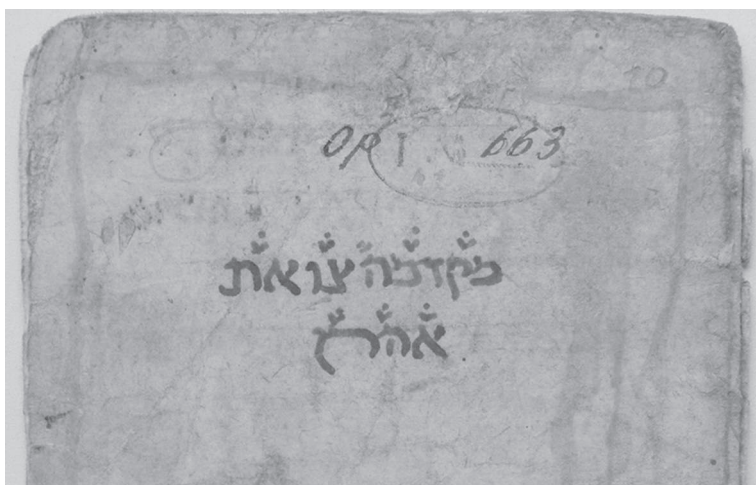 Op I 663
מקדמה צו את
אהרן